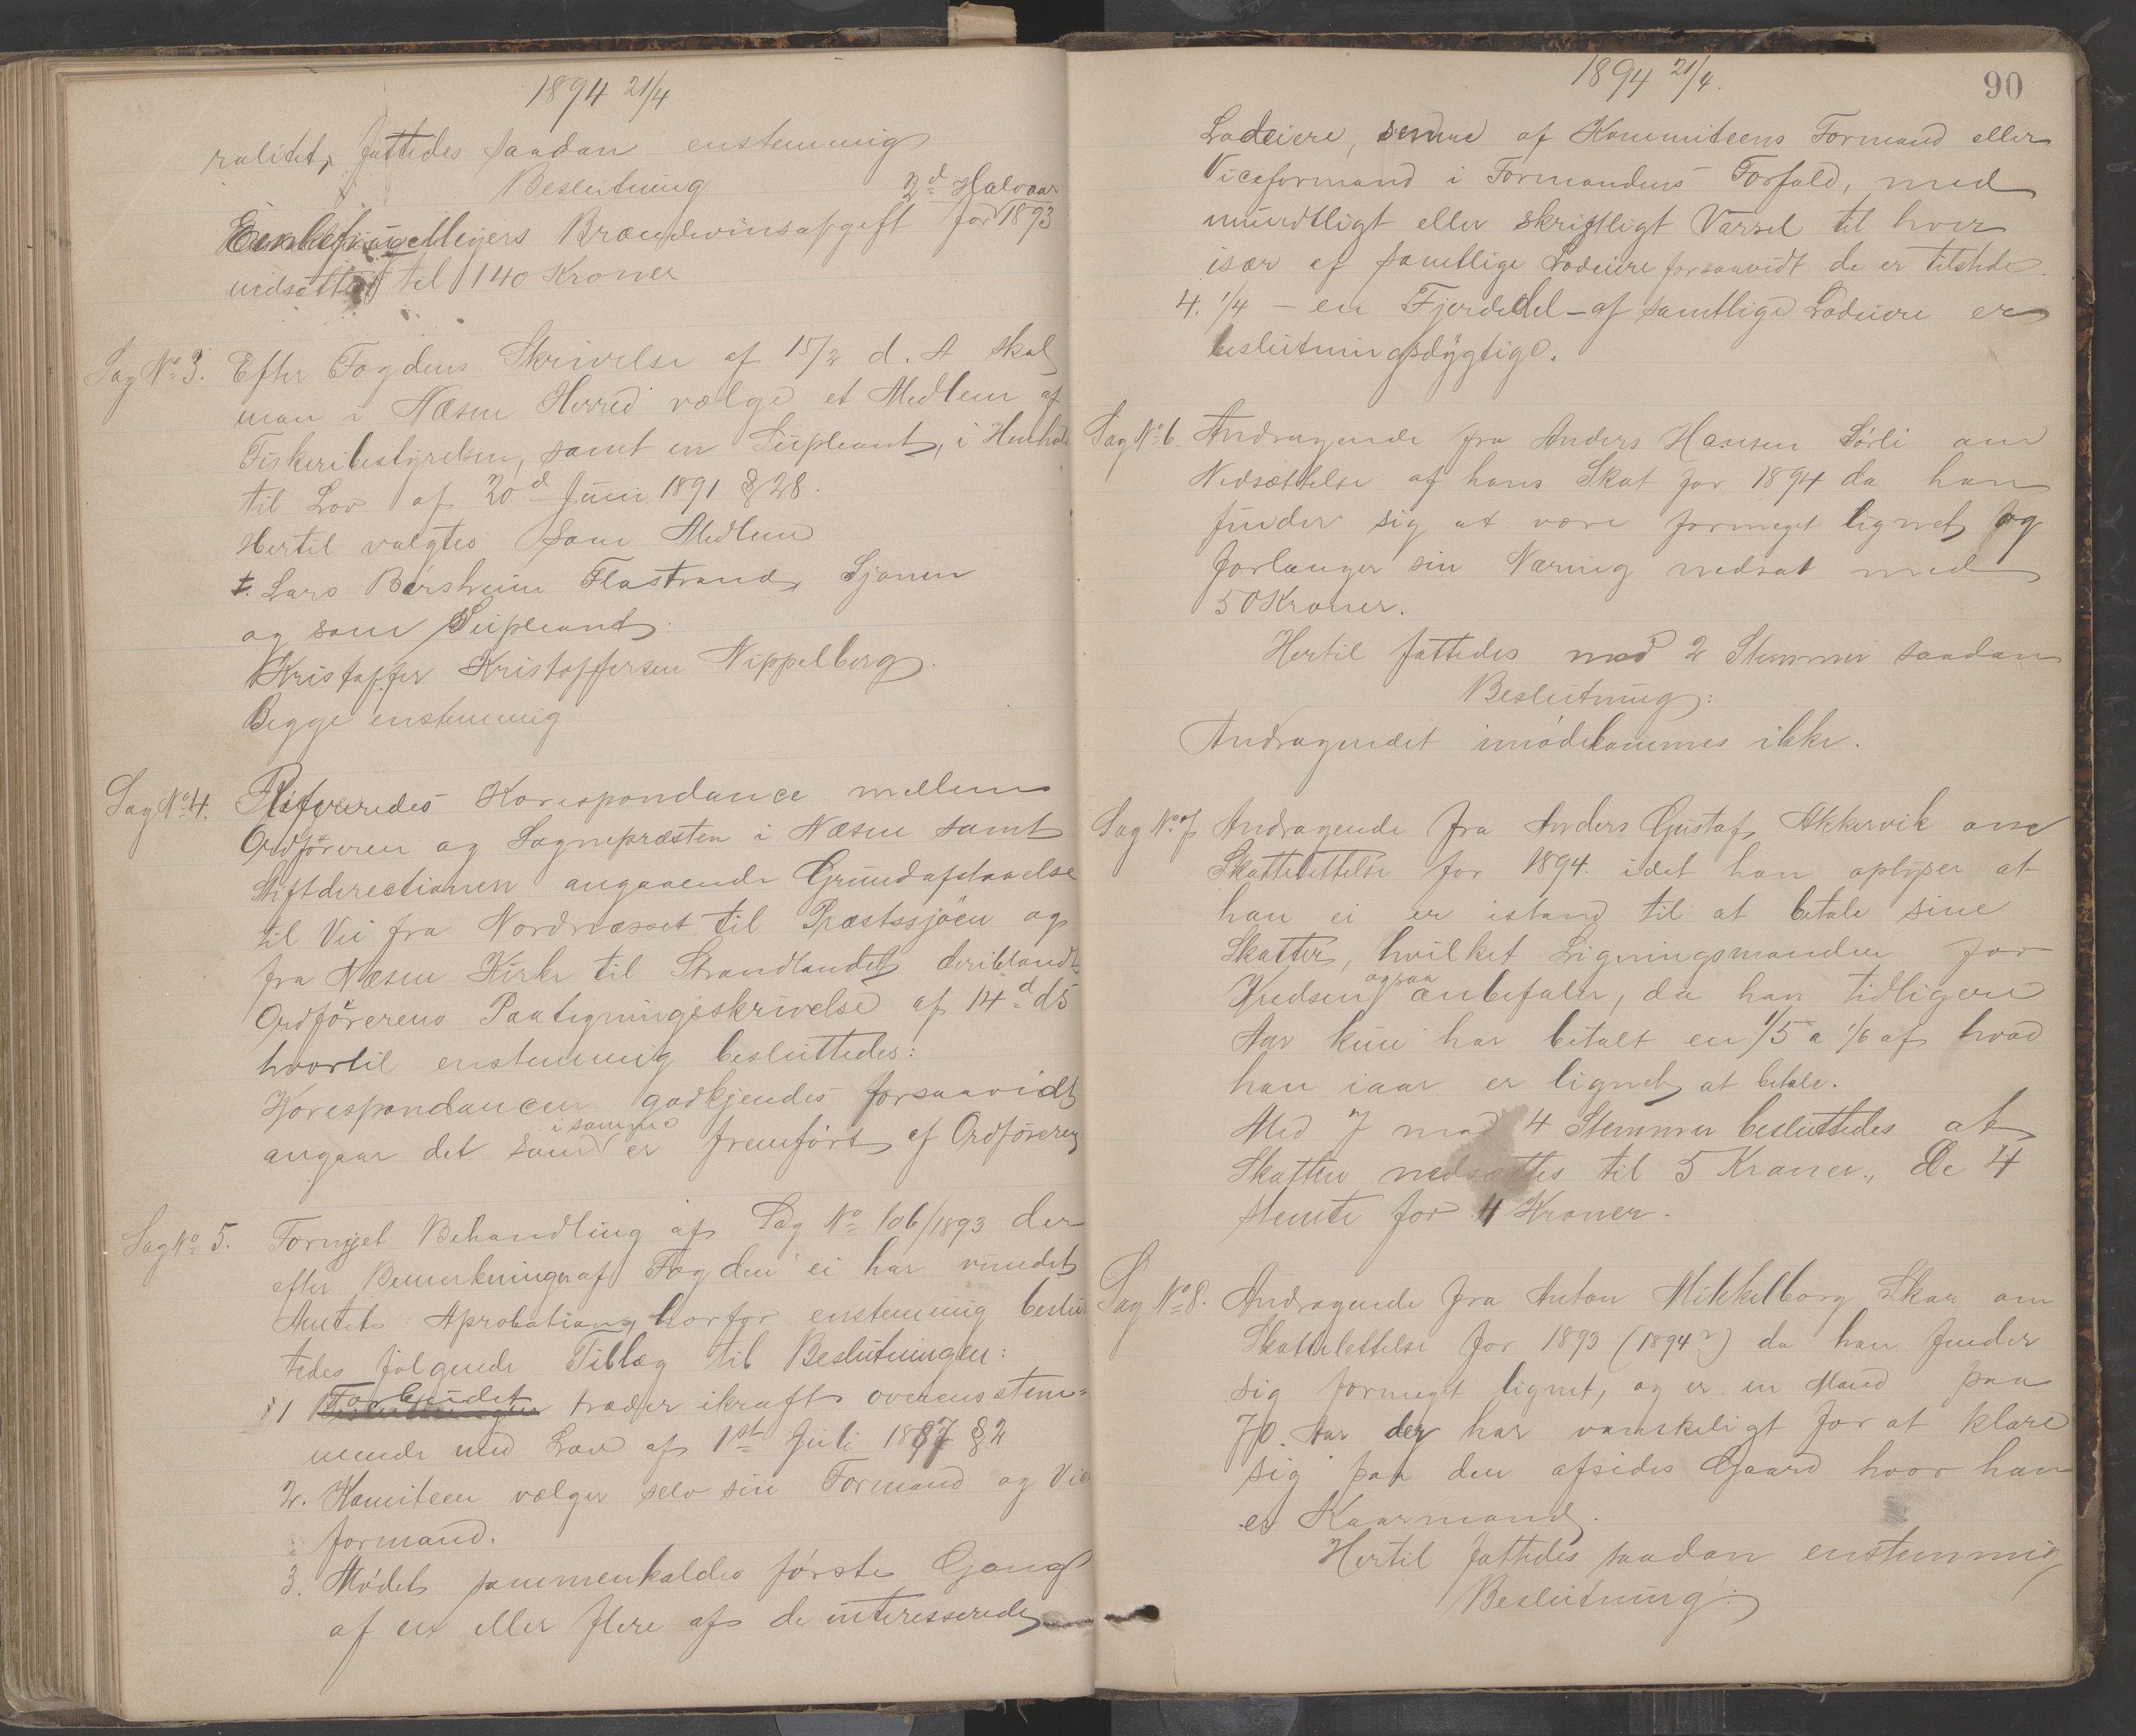 1894 21/4
ralitet, fattedes saadan enstemmig
Beslutning
2d Halvaar
Meyers Brændevinsafgift for 1893
nedsættes til 140 Kroner
Sag No 3. Efter Fogdens Skrivelse af 15/2 d. A. skal
man i Næsne Herred vælge et Medlem af
Fiskeribestyrelsen, samt en Supleant, i Henhold
til Lov af 20d Juni 1891 § 28.
Hertil valgtes som Medlem
Lars Børsheim Flostrand, Sjonen
og som Supleant:
Kristoffer Kristoffersen Nippelberg.
Begge enstemmig
Sag No 4. Refereredes Korespondance mellem
Ordføreren og Sognepræsten i Næsne samt
Stiftdirectionen angaaende Grundafstaaelse
til Vei fra Nordnæsset til Præstssjøen og
fra Næsne Kirke til Strandlandet, deriblandt
Ordførerens Paategningsskrivelse af 14d ds
hvortil enstemmig besluttedes:
Korespondancen godkjendes forsaavidt
i samme
angaar det som er fremført af Ordføreren
Sag No 5. Fornyet Behandling af Sag No 106/1893 der
efter Bemerkninger af Fogden ei har vundet
Amtets Aprobation, horfor enstemmig beslut
tedes følgende Tillæg til Beslutningen:
1 Forbudet træder ikraft overensstem=
mende med Lov af 1st Juli 1887 § 2
2. Komiteen vælger selv sin Formand og Vice
formand.
3. Mødet sammenkaldes første Gang
af en eller flere af de interesserede
1894 21/4.
90
Lodeiere, senere af Kommiteens Formand eller
Viceformand i Formandens Forfald, med
mundtligt eller skriftligt Varsel til hver
især af samtlige Lodeiere forsaavidt de er tilstede.
4. 1/4 - en Fjerdedel - af samtlige Lodeiere er
beslutningsdygtige.
Sag No 6. Andragende fra Anders Hansen Sørli om
Nedsættelse af hans Skat for 1894 da han
finder sig at være formeget lignet, og
forlanger sin Næring nedsat med
50 Kroner.
Hertil fattedes mod 2 Stemmer saadan
Beslutning:
Andragendet imødekommes ikke.
Sag No 7 Andragende fra Anders Gustaf, Akkervik om
Skattelettelse for 1894. idet han oplyser at
han ei er istand til at betale sine
Skatter, hvilket Ligningsmanden for
ogsaa
anbefaler, da han tidligere
Aar kun har betalt en 1/5 a 1/6 af hvad
han iaar er lignet at betale.
Med 7 mod 4 Stemmer besluttedes at
Skatten nedsættes til 5 Kroner., De 4
stemte for 4 Kroner.
Sag No 8. Andragende fra Anton Mikkelborg Skaa om
Skattelettelse for 1893 (1894?) da han finder
sig formeget lignet, og er en Mand paa
70 Aar der har vanskeligt for at klare
sig paa den afsides Gaard hvor han
er Kaarmand.
Hertil fattedes saadan enstemmig
Beslutning: